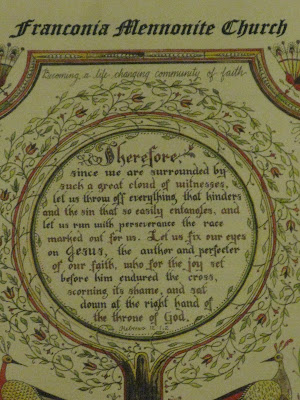 Franconia Mennonite Church
Becoming a life-changing community of faith
Therefore,
since we are surrounded by
such a great cloud of witnesses,
let us throw off everything that hinders
and the sin that so easily entangles, and
let us run with perseverance the race
marked out for us. Let us fix our eyes
on Jesus, the author and perfecter
of our faith, who for the joy set
before him endured the cross,
scorning its shame, and sat
down at the right hand of
the throne of God.
Hebrews 12:1,2